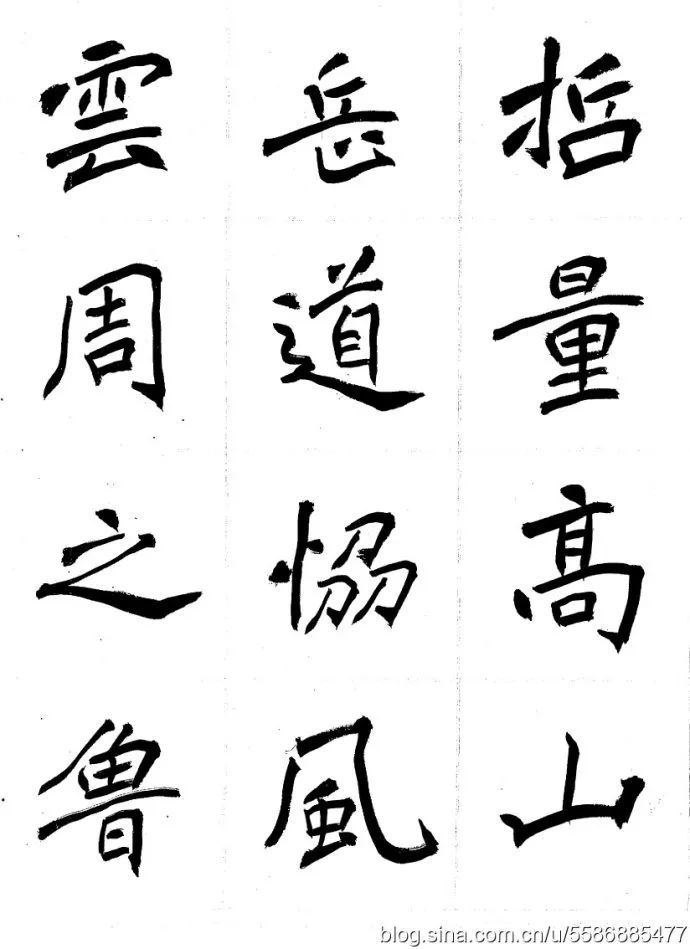 哲量高山
岳道恊風
雲周之魯
blog.sina.com.cn/u/5586885477